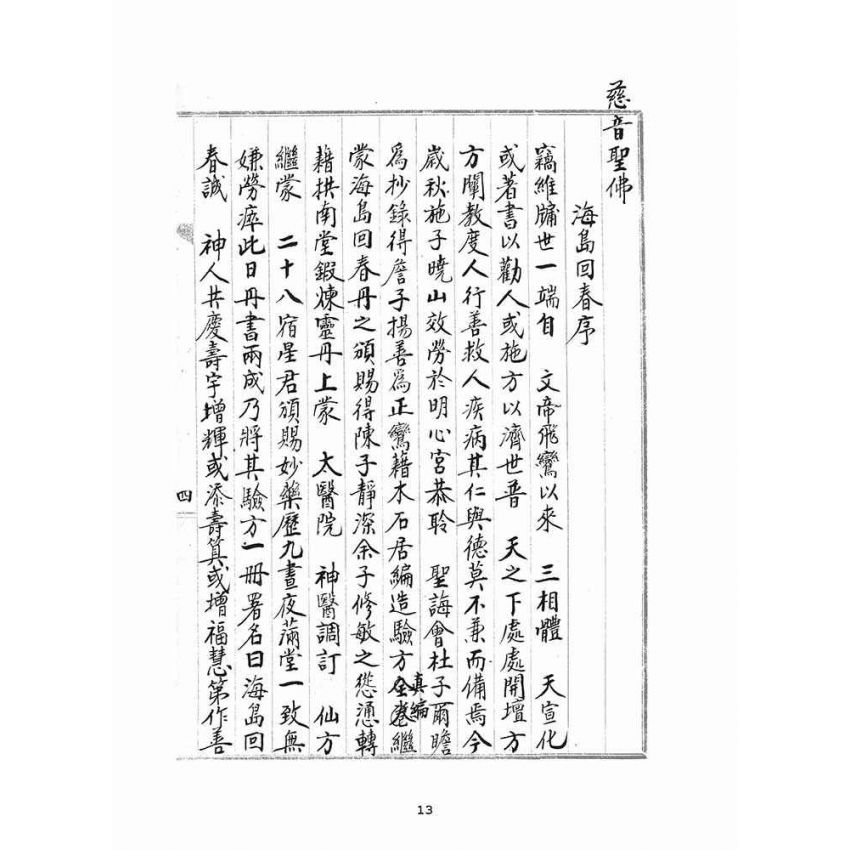 慈音聖佛
海島回春序
竊維牖世一端自　文帝飛鸞以來　三相體　天宣化
或著書以勸人或施方以濟世普　天之下處處開壇方
方闡教度人行善救人疾病其仁與德莫不兼而備焉今
歲秋施子曉山效勞於明心宮恭聆　聖誨會杜子爾瞻
為抄錄得詹子揚善為正鸞藉木石居編造驗方真編繼
蒙海島回春丹之頒賜得陳子靜深余子修敏之慫慂轉
藉拱南堂鍛煉靈丹上蒙　太醫院　神醫調訂　仙方
繼蒙　二十八宿星君頒賜妙藥歷九晝夜滿堂一致無
嫌勞瘁此日丹書兩成乃將其驗方一冊署名曰海島回
春誠　神人共慶壽宇增輝或添壽算或增福慧第作善
四
13